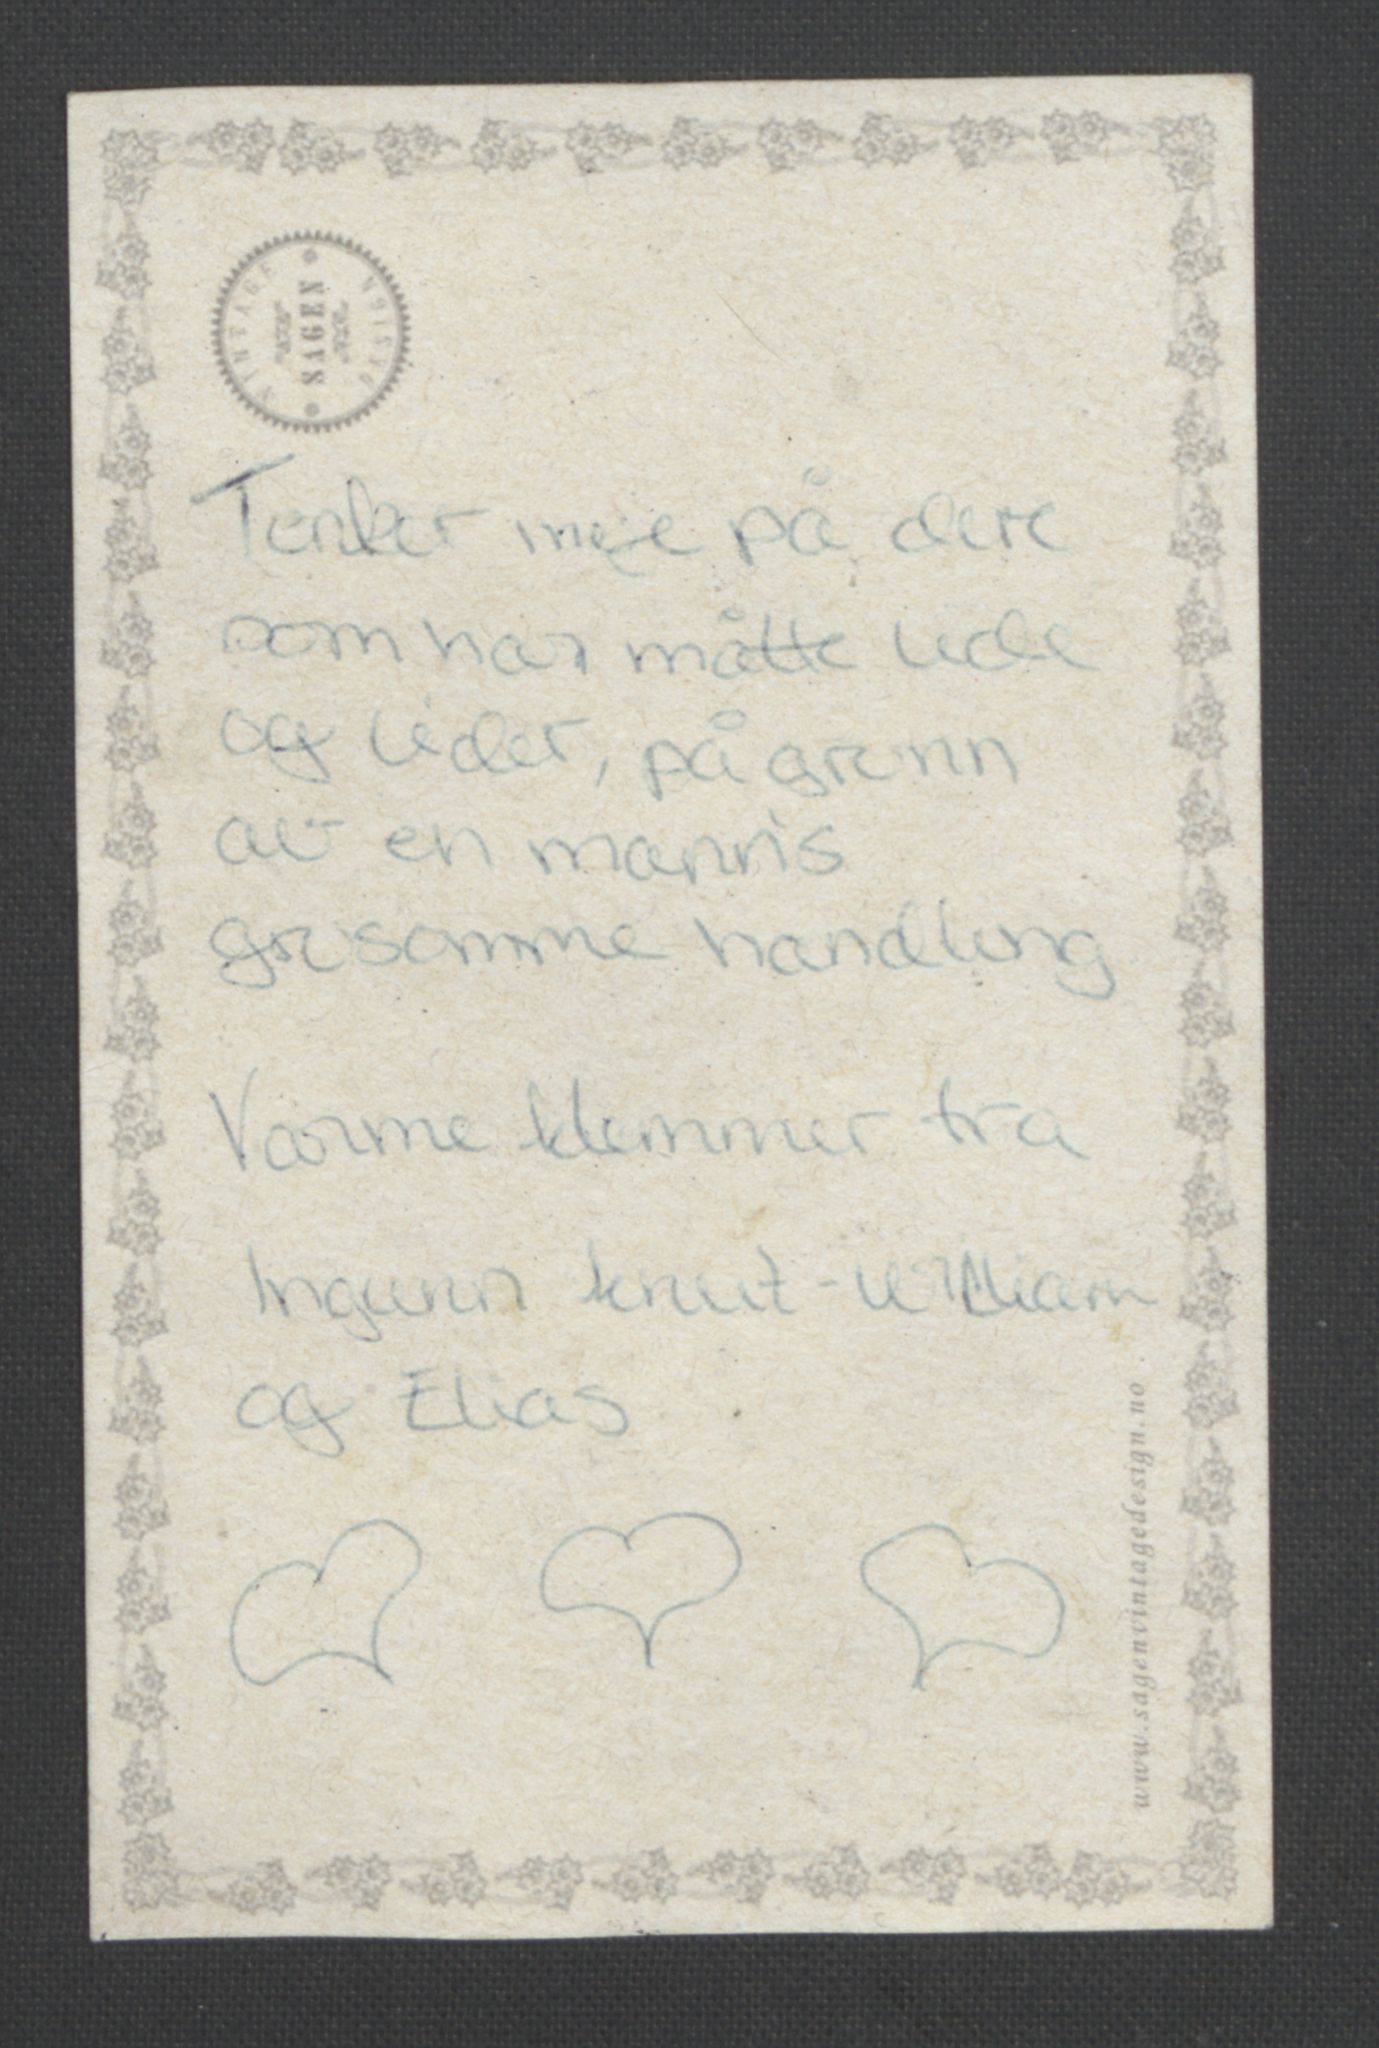 VINTAGE
SAGEN
DESIGN
Tenker mye på dere
som har måtte lide
og lider, på grunn
av en manns
grusomme handling
Varme klemmer fra
Ingunn Knut-William
og Elias
www.sagenvintagedesign.no